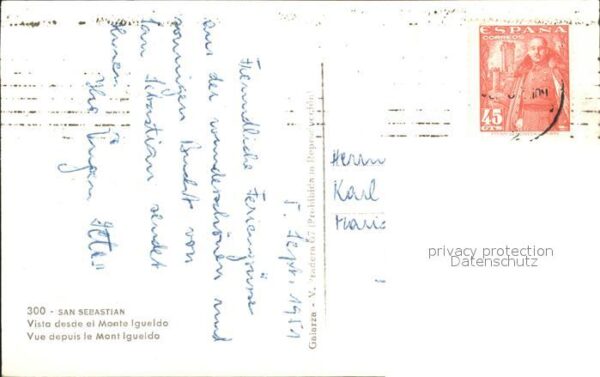 5. Sept. 1951
Freundliche Feriengrüsse
aus der wunderschönen und
sonnigen Bucht von
San Sebastian sendet
Ihnen
Ihr Jürgen
Herrn
Karl
ESPAÑA
CORREOS
45
CTS
privacy protection
Datenschutz
Galarza - V. Pradera 67 (Prohibida la Reproducción)
300 - SAN SEBASTIAN
Vista desde el Monte Igueldo
Vue depuis le Mont Igueldo